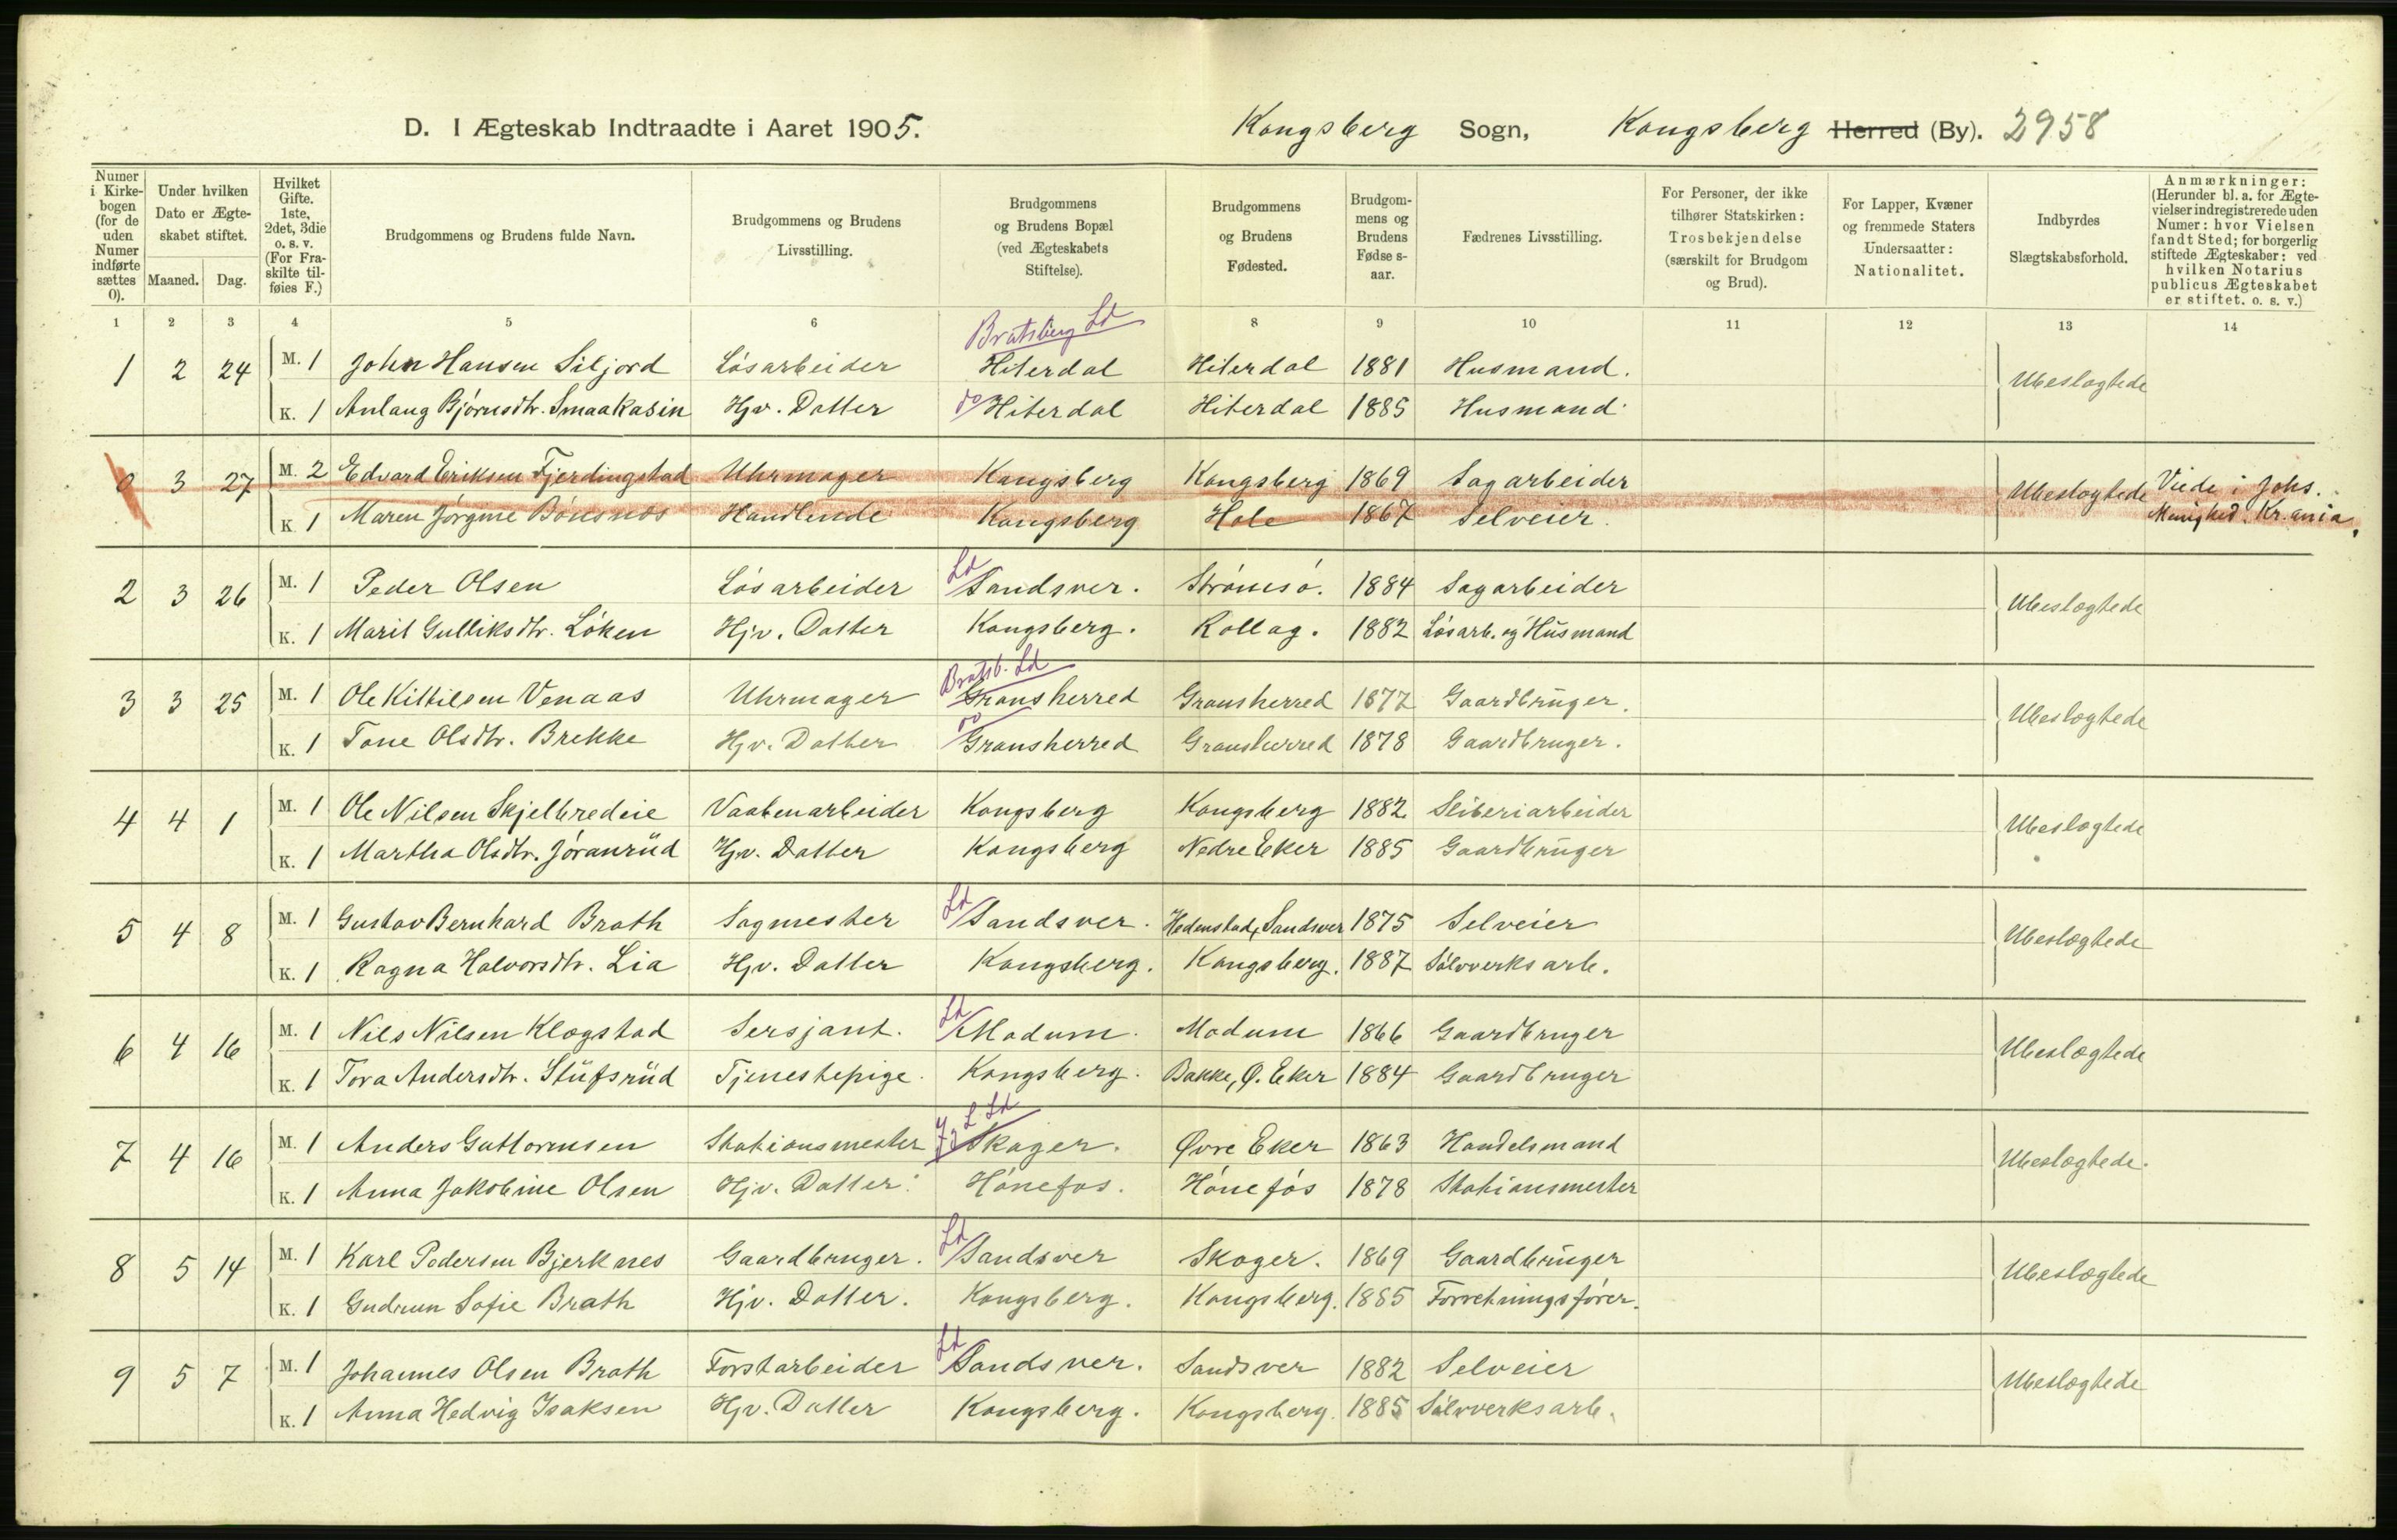 D. I Ægteskab Indtraadte i Aaret 1905. Kongsberg Sogn, Kongsberg Herred (By). 2958
Numer i Kirkebogen (for de uden Numer indførte sættes 0). Under hvilken Dato er Ægteskabet stiftet. Maaned. Dag. Hvilket Gifte. 1ste, 2det, 3die o. s. v. (For Fraskilte tilføies F.) Brudgommens og Brudens fulde Navn. Brudgommens og Brudens Livsstilling. Brudgommens og Brudens Bopæl (ved Ægteskabets Stiftelse). Brudgommens og Brudens Fødested. Brudgommens og Brudens Fødselsaar. Fædrenes Livsstilling. For Personer, der ikke tilhører Statskirken: Trosbekjendelse (særskilt for Brudgom og Brud). For Lapper, Kvæner og fremmede Staters Undersaatter: Nationalitet. Indbyrdes Slægtskabsforhold. Anmærkninger: (Herunder bl. a. for Ægtevielser indregistrerede uden Numer: hvor Vielsen fandt Sted; for borgerlig stiftede Ægteskaber: ved hvilken Notarius publicus Ægteskabet er stiftet. o. s. v.)
1 2 3 4 5 6 8 9 10 11 12 13 14
Bratsberg Ld
1 2 24 M. 1 John Hansen Siljord Løsarbeider Hiterdal Hiterdal 1881 Husmand. Ubeslægtede
K. 1 Anlaug Bjørnsdtr. Smaakasin Hjv. Datter do Hiterdal Hiterdal 1885 Husmand
0 3 27 M. 2 Edvard Eriksen Fjerdingstad Uhrmager Kongsberg Kongsberg 1869 Sagarbeider Ubeslægtede Viede i Johs.
K. 1 Maren Jørgine Bønsnæs Handlende Kongsberg Hole 1867 Selveier. Menighed. Kr.ania.
2 3 26 M. 1 Peder Olsen Løsarbeider Ld Sandsver. Strømsø. 1884 Sagarbeider Ubeslægtede
K. 1 Marit Gulliksdtr. Løken Hjv. Datter Kongsberg. Rollag. 1882 Løsarb. og Husmand
Bratsb. Ld
3 3 25 M. 1 Ole Kittilsen Venaas Uhrmager Gransherred Gransherred 1877 Gaardbruger. Ubeslægtede
K. 1 Tone Olsdtr. Brekke Hjv. Datter do Gransherred Gransherred 1878 Gaardbruger.
4 4 1 M. 1 Ole Nilsen Skjelbredeie Vaabenarbeider Kongsberg Kongsberg 1882 Sliberiarbeider Ubeslægtede
K. 1 Martha Olsdtr. Jøranrud Hjv. Datter Kongsberg Nedre Eker 1885 Gaardbruger
5 4 8 M. 1 Gustav Bernhard Brath Sagmester Ld Sandsver. Hedenstad, Sandsver 1875 Selveier Ubeslægtede
K. 1 Ragna Halvorsdtr. Lia Hjv. Datter Kongsberg. Kongsberg. 1887 Sølvverksarb.
6 4 16 M. 1 Nils Nilsen Klogstad Sersjant. Ld Modum. Modum 1866 Gaardbruger Ubeslægtede
K. 1 Tora Andersdtr. Stufsrud Tjenestepige. Kongsberg. Bakke, Ø. Eker 1884 Gaardbruger
7 4 16 M. 1 Anders Guttormsen Stationsmester J L Ld Skoger. Øvre Eker 1863 Handelsmand Ubeslægtede.
K. 1 Anna Jakobine Olsen Hjv. Datter. Hønefos. Hønefos 1878 Stationsmester
8 5 14 M. 1 Karl Pedersen Bjerknes Gaardbruger. Ld Sandsver Skoger. 1869 Gaardbruger Ubeslægtede
K. 1 Gudrun Sofie Brath Hjv. Datter. Kongsberg. Kongsberg. 1885 Forretningsfører.
9 5 7 M. 1 Johannes Olsen Brath Forstarbeider Ld Sandsver. Sandsver 1882 Selveier Ubeslægtede
K. 1 Anna Hedvig Isaksen Hjv. Datter Kongsberg. Kongsberg. 1885 Sølvverksarb.